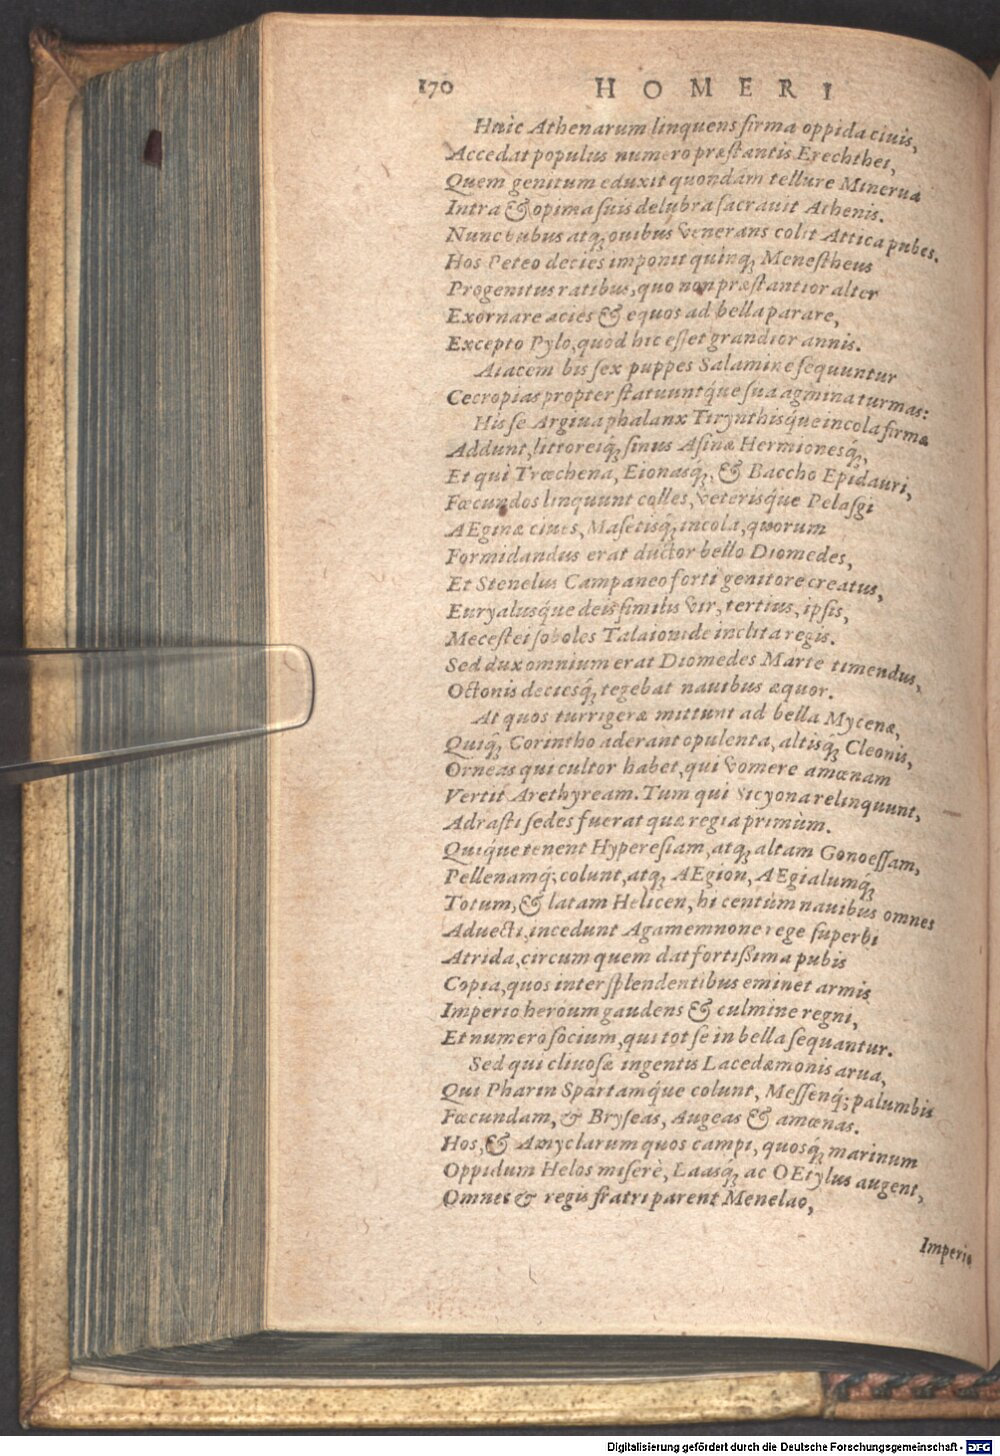 170 HOMERI
Huic Athenarum linquens firma oppida ciuis,
Accedat populus numero præstantis Erechthei,
Quem genitum eduxit quondam tellure Minerua
Intra & opima suis delubra sacrauit Athenis.
Nunc bubus atq; ouibus venerans colit Attica pubes.
Hos Peteo decies imponit quinq; Menestheus
Progenitus ratibus, quo non præstantior alter
Exornare acies & equos ad bella parare,
Excepto Pylo, quod hic esset grandior annis.
Aiacem bis sex puppes Salamine sequuntur
Cecropias propter statuuntq́ue sua agmina turmas:
His se Argiua phalanx Tirynthisq́ue incola firmæ
Addunt, littoreiq́; sinus Asinæ Hermionesq́;,
Et qui Trœchena, Eionasq́;, & Baccho Epidauri,
Fœcundos linquunt colles, veterisq́ue Pelasgi
AEginæ ciues, Masetisq́; incola, quorum
Formidandus erat ductor bello Diomedes,
Et Stenelus Campaneo forti genitore creatus,
Euryalusq́ue deis similis vir, tertius, ipsis,
Mecestei soboles Talaionide inclita regis.
Sed dux omnium erat Diomedes Marte timendus,
Octonis deciesq́; tegebat nauibus æquor.
At quos turrigeræ mittunt ad bella Mycenæ,
Quiq́; Corintho aderant opulenta, altisq́; Cleonis,
Orneas qui cultor habet, qui vomere amœnam
Vertit Arethyream. Tum qui Sicyona relinquunt,
Adrasti sedes fuerat quæ regia primùm.
Quiq́ue tenent Hyperesiam, atq; altam Gonoessam,
Pellenamq́; colunt, atq; AEgion, AEgialumq́;
Totum, & latam Helicen, hi centùm nauibus omnes
Aduecti, incedunt Agamemnone rege superbi
Atrida, circum quem dat fortißima pubis
Copia, quos inter splendentibus eminet armis
Imperio heroum gaudens & culmine regni,
Et numero socium, qui tot se in bella sequantur.
Sed qui cliuosæ ingentis Lacedæmonis arua,
Qui Pharin Spartamq́ue colunt, Messenq́; palumbis
Fœcundam, & Bryseas, Augeas & amœnas.
Hos, & Amyclarum quos campi, quosq́; marinum
Oppidum Helos miserè, Laasq́; ac OEtylus augent,
Omnes & regis fratri parent Menelao,
Imperio
Digitalisierung gefördert durch die Deutsche Forschungsgemeinschaft - DFG